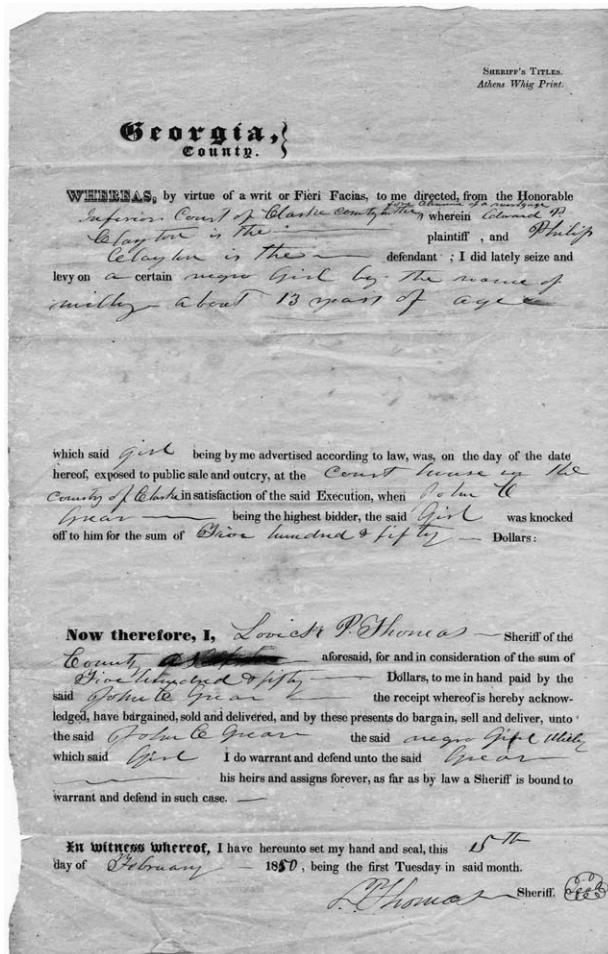 SHERIFF'S TITLES.
Athens Whig Print.
Georgia,
County.
WHEREAS, by virtue of a writ or Fieri Facias, to me directed, from the Honorable
Inferior Court of Clarke county wherein Edward P
Clayton is the plaintiff , and Philip
Clayton is the defendant ; I did lately seize and
levy on a certain negro Girl by the name of
milly about 13 years of age
which said girl being by me advertised according to law, was, on the day of the date
hereof, exposed to public sale and outcry, at the Court house in the
County of Clarke in satisfaction of the said Execution, when John C
Grear being the highest bidder, the said Girl was knocked
off to him for the sum of Five hundred & fifty Dollars:
Now therefore, I, Lovick P. Thomas Sheriff of the
County aforesaid, for and in consideration of the sum of
Five hundred & fifty Dollars, to me in hand paid by the
said John C Grear the receipt whereof is hereby acknow-
ledged, have bargained, sold and delivered, and by these presents do bargain, sell and deliver, unto
the said John C Grear the said negro Girl Milly
which said Girl I do warrant and defend unto the said Grear
his heirs and assigns forever, as far as by law a Sheriff is bound to
warrant and defend in such case.
In witness whereof, I have hereunto set my hand and seal, this 15th
day of February 1850, being the first Tuesday in said month.
L P Thomas Sheriff.